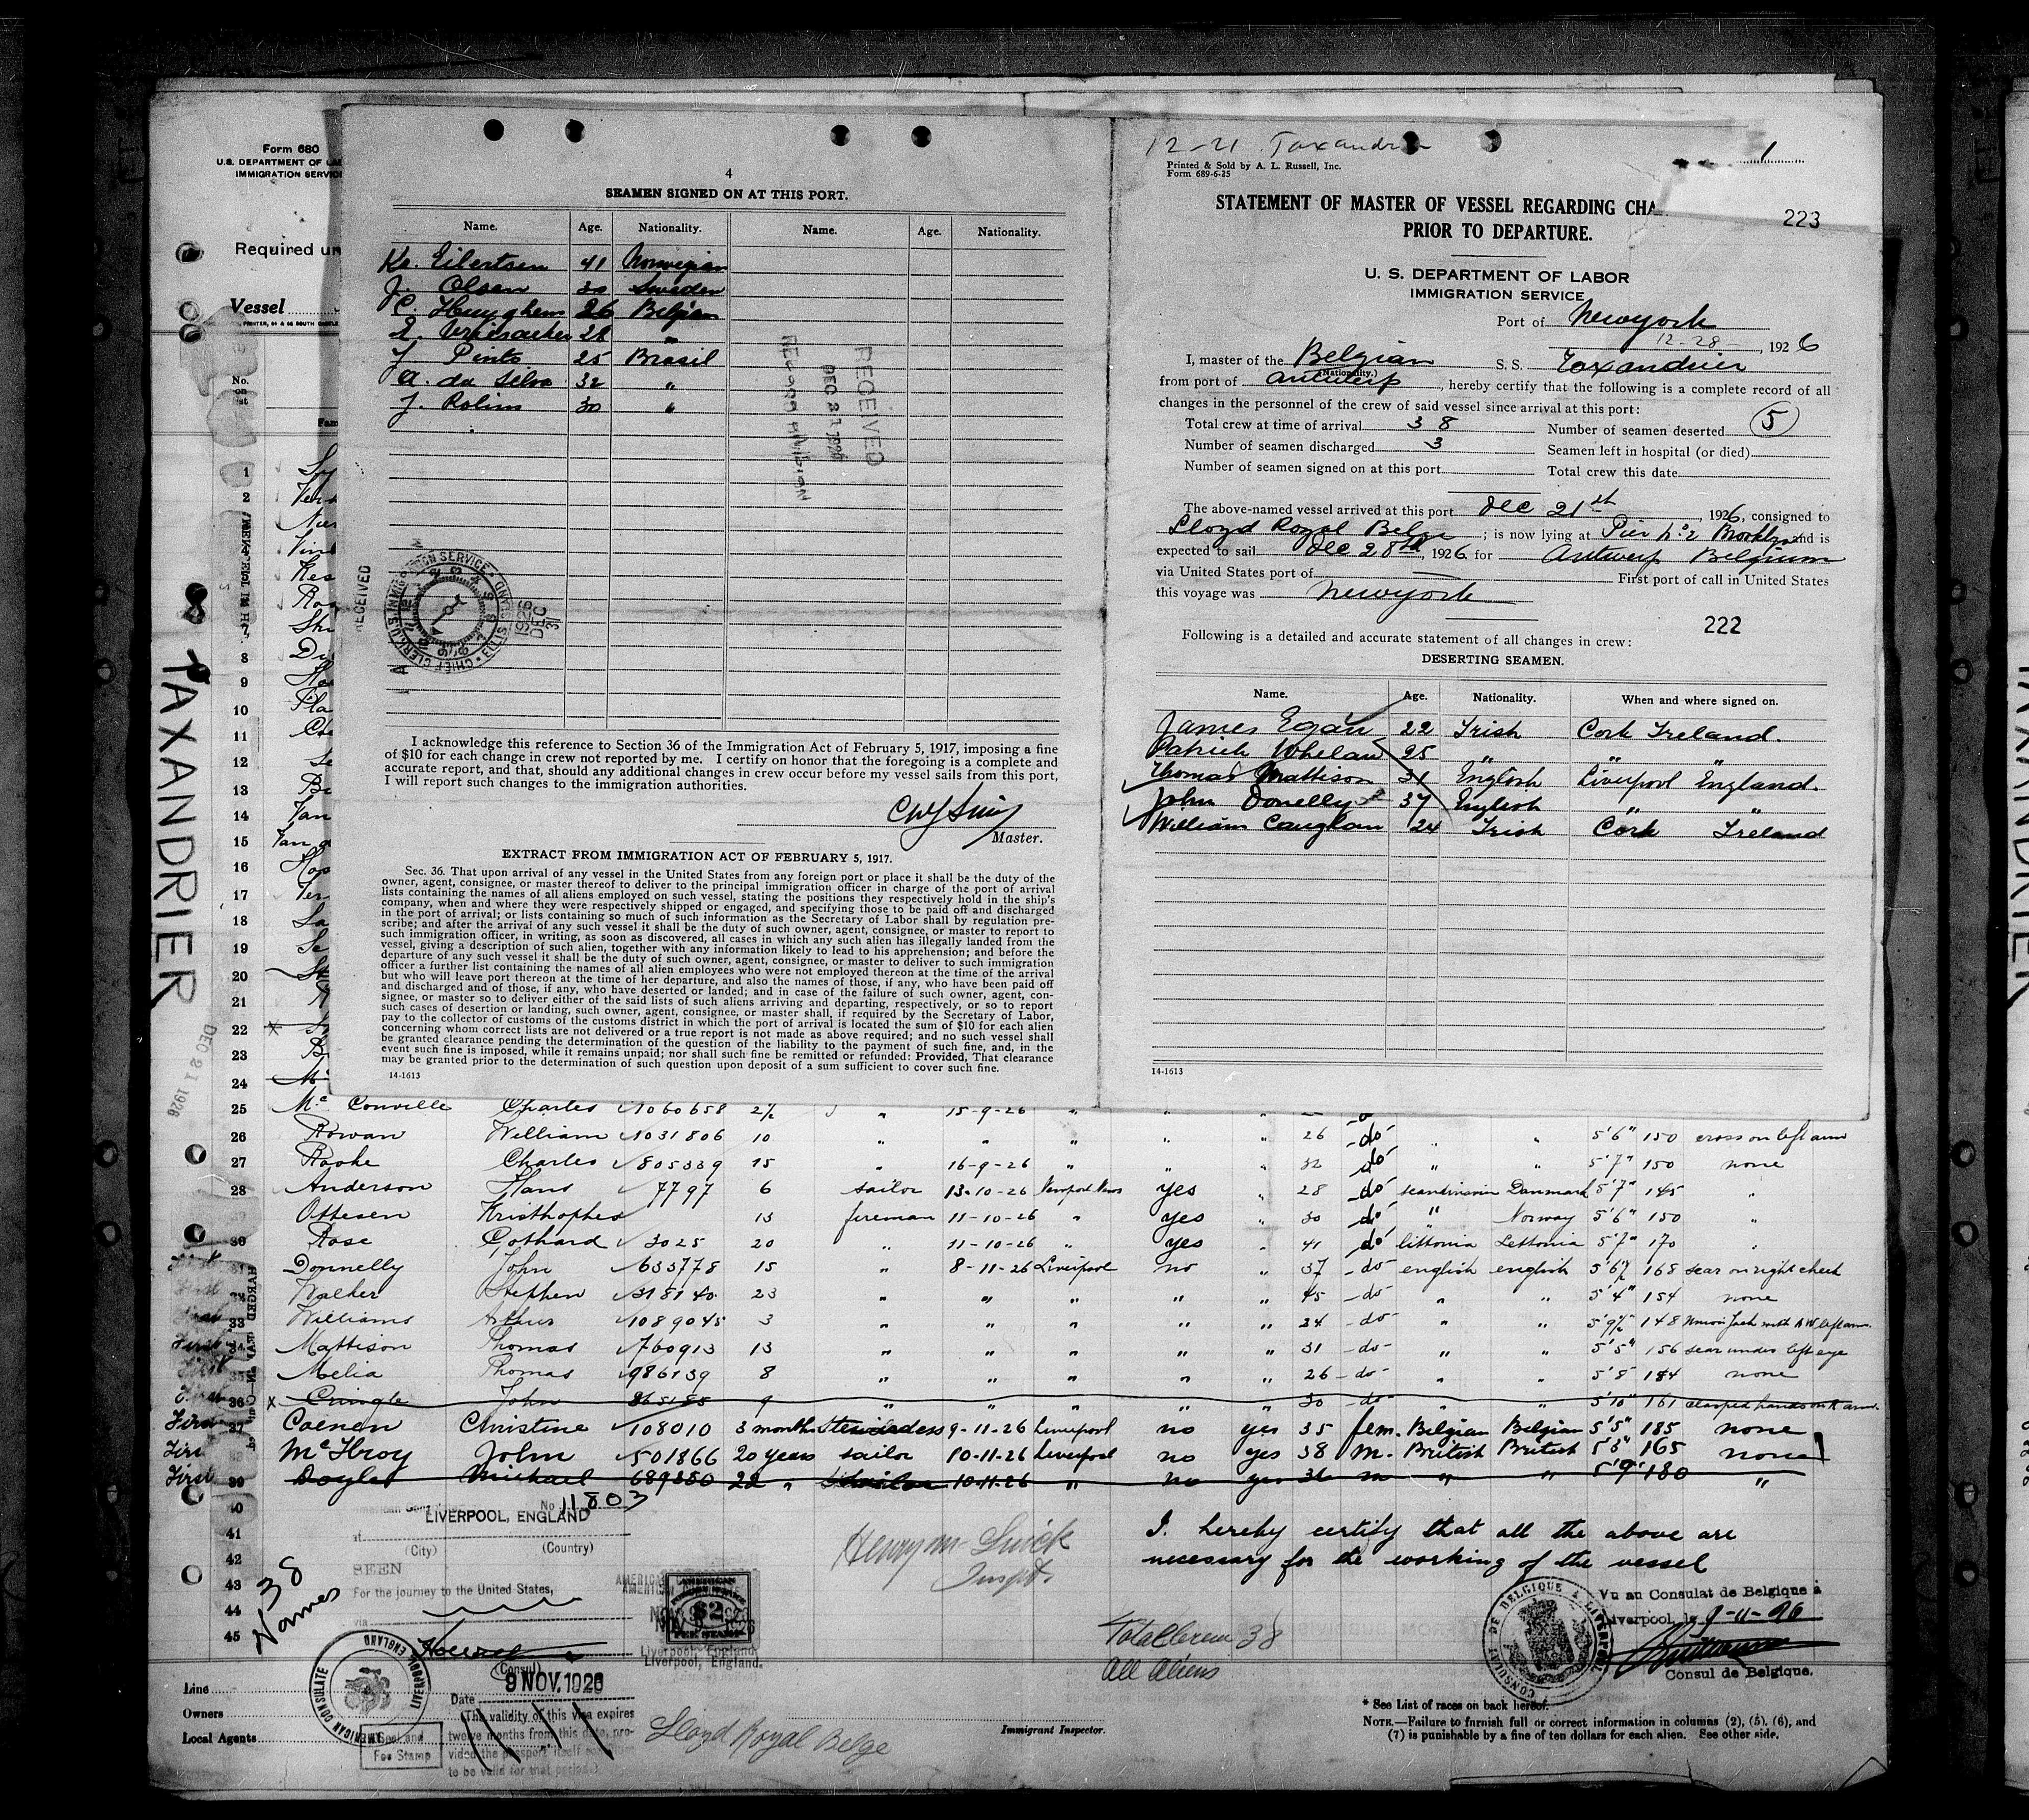 Form 680
U.S. DEPARTMENT OF
IMMIGRATION SERVICE
Required
Vessel
No. on list
4
SEAMEN SIGNED ON AT THIS PORT.
Name. Age. Nationality. Name. Age. Nationality.
Ks. Eilertsen 41 Norwegian
J. Olsen 30 Sweden
C. Huyghens 26 Belgian
28 "
J. Pinto 25 Brasil
A. da Silva 32 "
J. Rolim 30 "
RECEIVED
DEC 31 1926
RECORD DIVISION
RECEIVED
CHIEF CLERK U.S. IMMIGRATION SERVICE ELLIS ISLAND
1926 DEC 31
I acknowledge this reference to Section 36 of the Immigration Act of February 5, 1917, imposing a fine
of $10 for each change in crew not reported by me. I certify on honor that the foregoing is a complete and
accurate report, and that, should any additional changes in crew occur before my vessel sails from this port,
I will report such changes to the immigration authorities.
Master.
EXTRACT FROM IMMIGRATION ACT OF FEBRUARY 5, 1917.
Sec. 36. That upon arrival of any vessel in the United States from any foreign port or place it shall be the duty of the
owner, agent, consignee, or master thereof to deliver to the principal immigration officer in charge of the port of arrival
lists containing the names of all aliens employed on such vessel, stating the positions they respectively hold in the ship's
company, when and where they were respectively shipped or engaged, and specifying those to be paid off and discharged
in the port of arrival; or lists containing so much of such information as the Secretary of Labor shall by regulation pre-
scribe; and after the arrival of any such vessel it shall be the duty of such owner, agent, consignee, or master to report to
such immigration officer, in writing, as soon as discovered, all cases in which any such alien has illegally landed from the
vessel, giving a description of such alien, together with any information likely to lead to his apprehension; and before the
departure of any such vessel it shall be the duty of such owner, agent, consignee, or master to deliver to such immigration
officer a further list containing the names of all alien employees who were not employed thereon at the time of the arrival
but who will leave port thereon at the time of her departure, and also the names of those, if any, who have been paid off
and discharged and of those, if any, who have deserted or landed; and in case of the failure of such owner, agent, con-
signee, or master so to deliver either of the said lists of such aliens arriving and departing, respectively, or so to report
such cases of desertion or landing, such owner, agent, consignee, or master shall, if required by the Secretary of Labor,
pay to the collector of customs of the customs district in which the port of arrival is located the sum of $10 for each alien
concerning whom correct lists are not delivered or a true report is not made as above required; and no such vessel shall
be granted clearance pending the determination of the question of the liability to the payment of such fine, and, in the
event such fine is imposed, while it remains unpaid; nor shall such fine be remitted or refunded: Provided, That clearance
may be granted prior to the determination of such question upon deposit of a sum sufficient to cover such fine.
14-1613
12-21 Taxandrier
1
Printed & Sold by A. L. Russell, Inc.
Form 689-6-25
STATEMENT OF MASTER OF VESSEL REGARDING CHA
223
PRIOR TO DEPARTURE.
U. S. DEPARTMENT OF LABOR
IMMIGRATION SERVICE
Port of Newyork
12-28-, 1926
I, master of the Belgian (Nationality.) S. S. Taxandrier
from port of Antwerp, hereby certify that the following is a complete record of all
changes in the personnel of the crew of said vessel since arrival at this port:
Total crew at time of arrival 38 Number of seamen deserted 5
Number of seamen discharged 3 Seamen left in hospital (or died)
Number of seamen signed on at this port Total crew this date
The above-named vessel arrived at this port Dec 21th, 1926, consigned to
Lloyd Royal Belge; is now lying at Pier No 2 Brooklyn and is
expected to sail Dec 28th, 1926 for Antwerp Belgium
via United States port of First port of call in United States
this voyage was Newyork
222
Following is a detailed and accurate statement of all changes in crew:
DESERTING SEAMEN.
Name. Age. Nationality. When and where signed on.
James Egan 22 Irish Cork Ireland.
Patrick Whelan 25 " " "
Thomas Mattison 31 English Liverpool England.
John Donelly 37 English " "
William Couglan 24 Irish Cork Ireland
14-1613
TAXANDRIER
DEC 21 1926
1
2
8
9
10
11
12
13
14
15
16
17
18
19
20
21
22
23
24
25 McConville Charles 1060658 2½ " 15-9-26 "
26 Rowan William 1031806 10 " " " " " 26 -do- " " 5'6" 150 cross on left arm
27 Rooke Charles 805339 15 " 16-9-26 " " " 32 do " " 5'7" 150 none
28 Anderson Hans 7797 6 sailor 13-10-26 Newport News yes " 28 -do- scandinavian Danmark 5'7" 145 "
Ottesen Kristhopher 13 fireman 11-10-26 " yes " 30 -do- " Norway 5'6" 150 "
30 Rose Gothard 3025 20 " 11-10-26 " yes " 41 do littonia Lettonia 5'7" 170 "
31 Donnelly John 633778 15 " 8-11-26 Liverpool no " 37 -do- english english 5'6½ 168 scar on right cheek
32 Walker Stephen 318140 23 " " " " " 45 -do- " " 5'4" 154 none
33 Williams Arthur 1089045 3 " " " " " 24 -do- " " 5'9½" 148 Union Jack with AW left arm.
34 Mattison Thomas 760913 13 " " " " " 31 -do- " " 5'5" 156 scar under left eye
35 Melia Thomas 986139 8 " " " " " 26 -do- " " 5'8" 184 none
36 x Cringle John 865185 9 " " " " " 30 -do- " " 5'10" 161 clasped hands on R arm.
First 37 Coenen Christine 108010 3 months Stewardess 9-11-26 Liverpool no yes 35 fem. Belgian Belgian 5'5" 185 none
First 38 McIlroy John 501866 20 years sailor 10-11-26 Liverpool no yes 38 m. British British 5'3" 165 none
First 39 Doyle Michael 689350 22 " 10-11-26 " no yes 36 m " " 5'9" 180 "
40
41
42
43
44
45
38 Names
No 11803
LIVERPOOL, ENGLAND
at
(City) (Country)
SEEN
For the journey to the United States,
via
(Consul)
9 NOV. 1926
Date
(The validity of this visa expires
twelve months from this date, pro-
vided the passport itself continues
to be valid for that period.)
AMERICAN CONSULATE LIVERPOOL ENGLAND
Seal and
Fee Stamp
AMERICAN
$2
FEE STAMP
Liverpool, England.
Liverpool, England.
Henry M Quick
Inspr.
I hereby certify that all the above are
necessary for the working of the vessel
Total Crew 38
All Aliens
CONSULAT DE BELGIQUE A LIVERPOOL
Vu au Consulat de Belgique à
Liverpool, le 9-11-26
Consul de Belgique.
Line
Owners
Local Agents
Lloyd Royal Belge
Immigrant Inspector.
* See List of races on back hereof.
NOTE.—Failure to furnish full or correct information in columns (2), (5), (6), and
(7) is punishable by a fine of ten dollars for each alien. See other side.